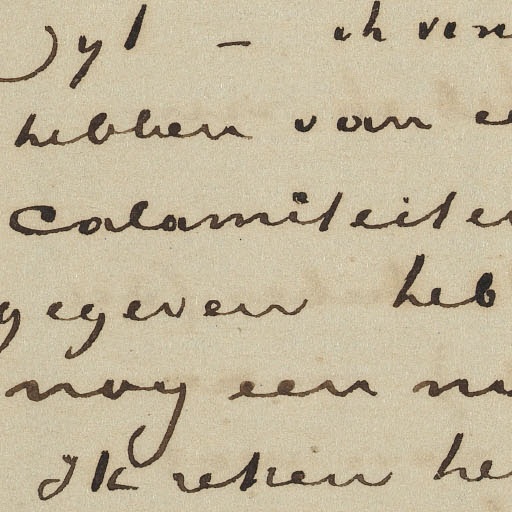 Dyt – ik ven
hebben van e
Calamiteiten
gegeven heb
nog een nu
Ik reken he